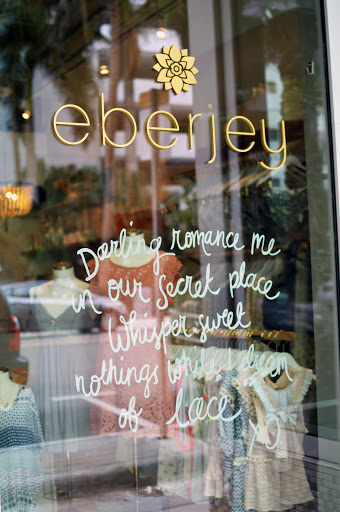 eberjey
Darling romance me
in our secret place
Whisper sweet
nothings while I dream
of lace
XO